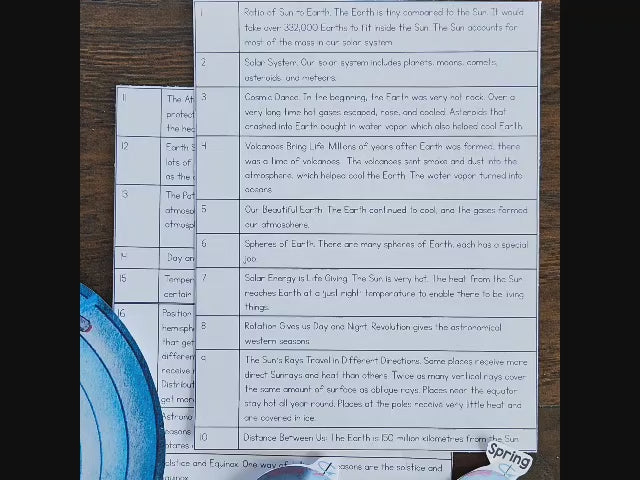 1 Ratio of Sun to Earth. The Earth is tiny compared to the Sun. It would
take over 332,000 Earths to fit inside the Sun. The Sun accounts for
most of the mass in our solar system.
2 Solar System. Our solar system includes planets, moons, comets,
asteroids, and meteors.
3 Cosmic Dance. In the beginning, the Earth was very hot rock. Over a
very long time hot gases escaped, rose, and cooled. Asteroids that
crashed into Earth bought in water vapor which also helped cool Earth.
4 Volcanoes Bring Life. Millions of years after Earth was formed, there
was a time of volcanoes. The volcanoes sent smoke and dust into the
atmosphere, which helped cool the Earth. The water vapor turned into
oceans.
5 Our Beautiful Earth. The Earth continued to cool, and the gases formed
our atmosphere.
6 Spheres of Earth. There are many spheres of Earth, each has a special
job.
7 Solar Energy is Life Giving. The Sun is very hot. The heat from the Sun
reaches Earth at a 'just right' temperature to enable there to be living
things.
8 Rotation Gives us Day and Night. Revolution gives the astronomical
western seasons.
9 The Sun's Rays Travel in Different Directions. Some places receive more
direct Sunrays and heat than others. Twice as many vertical rays cover
the same amount of surface as oblique rays. Places near the equator
stay hot all year round. Places at the poles receive very little heat and
are covered in ice.
10 Distance Between Us: The Earth is 150 million kilometres from the Sun
11 The At
protect
the hea
12 Earth S
lots of
as the
13 The Pat
atmosp
atmosp
14 Day an
15 Temper
certain
16 Position
hemisph
that get
differen
receive
Distribut
get mor
Astrono
seasons
rotates
olstice and Equinox. One way of
asons are the solstice and
quinox
Spring